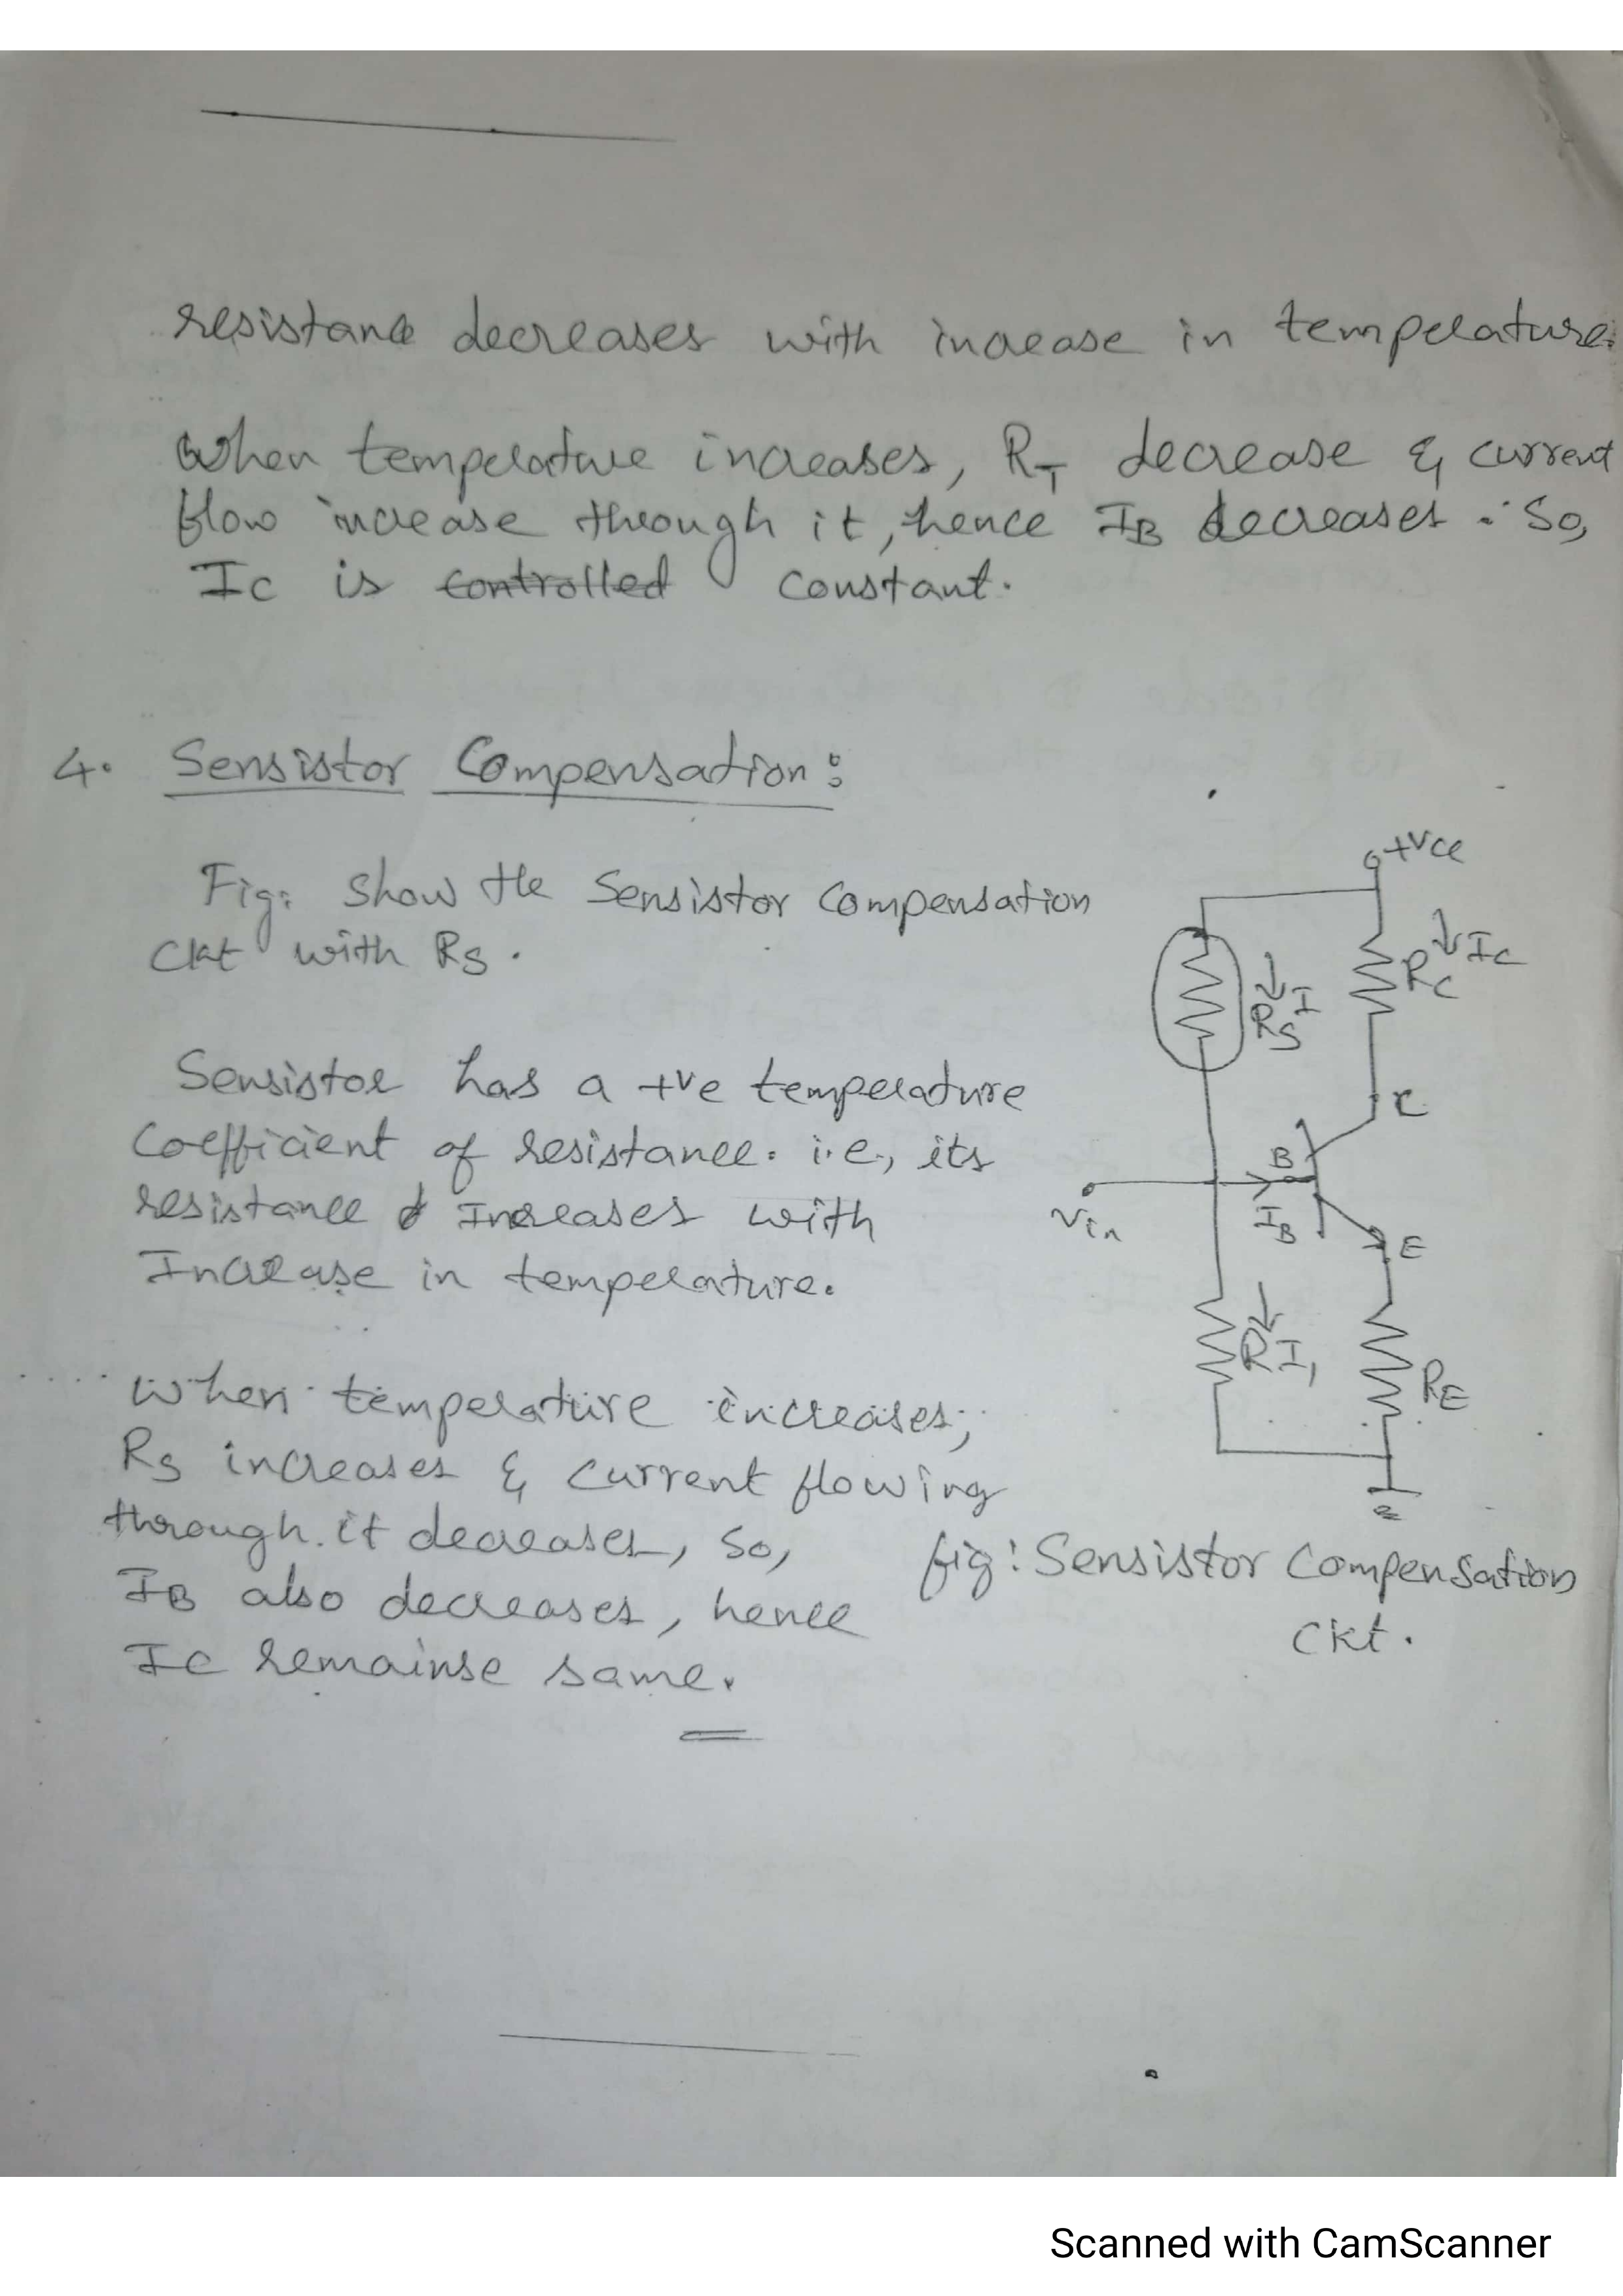 resistance decreases with increase in temperature.
When temperature increases, RT decrease & current
flow increase through it, hence IB decreases. So,
Ic is controlled constant.
4. Sensistor Compensation:
Fig: Show the Sensistor Compensation
Ckt with Rs.
Sensistor has a +ve temperature
Coefficient of resistance. i.e., its
resistance Increases with
Increase in temperature.
When temperature increases,
Rs increases & current flowing
through it decreases, So,
IB also decreases, hence
Ic remainse same.
+Vcc
Ic
Rc
I
Rs
C
B
Vin
IB
E
R I1
RE
fig: Sensistor Compensation
Ckt.
Scanned with CamScanner